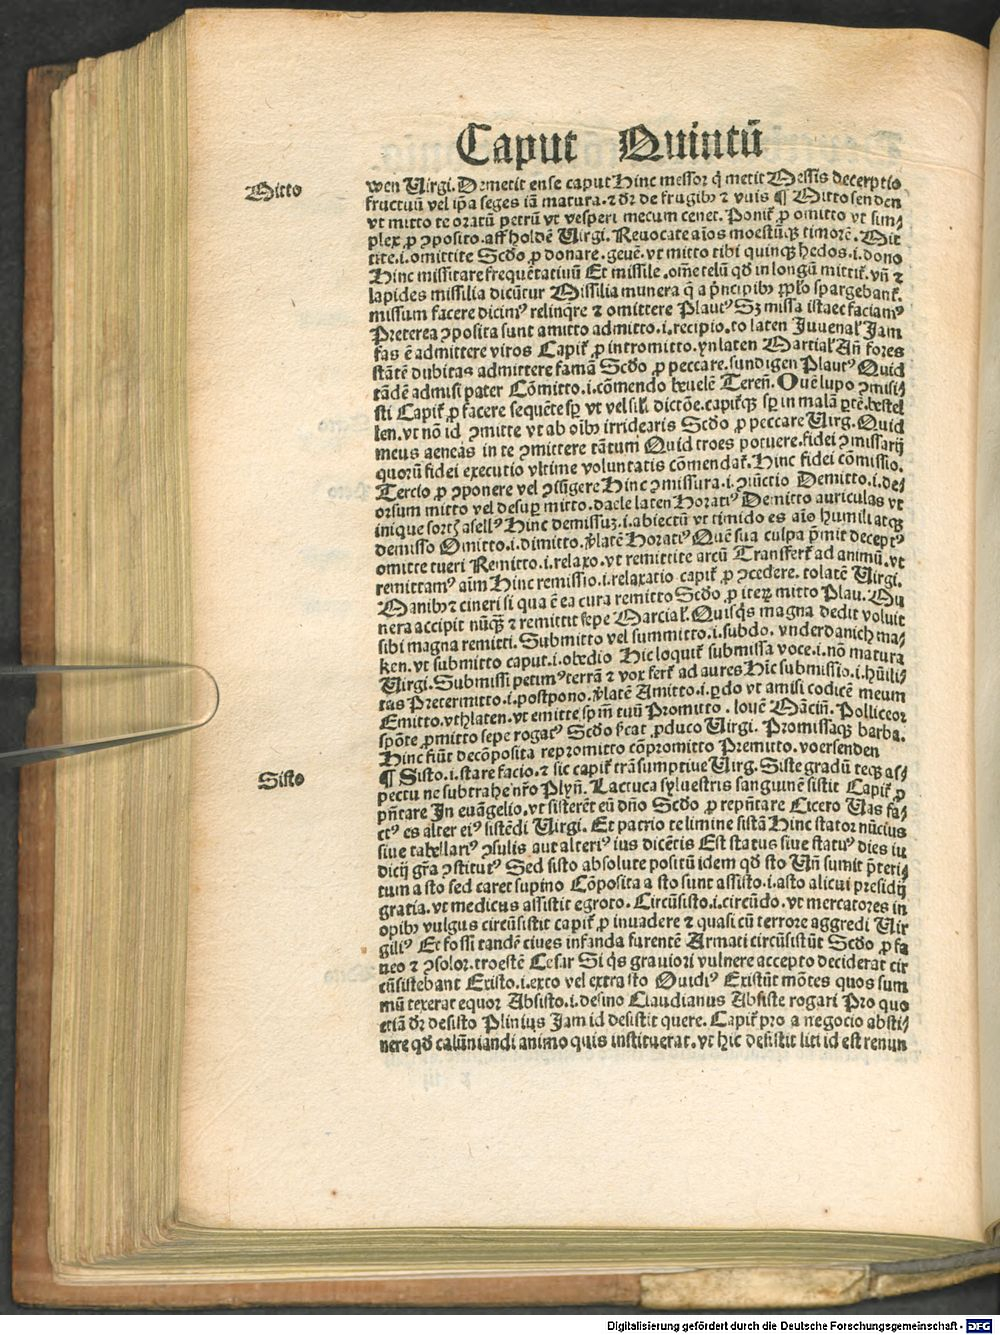 Caput Quintū
Mitto
wen Uirgi. Demetit ense caput Hinc messor q̄ metit Messis decerptio
fructuū vel ip̄a seges iā matura. ⁊ dr̄ de frugibꝰ ⁊ vuis ¶ Mitto senden
vt mitto te oratū petrū vt vesperi mecum cenet. Ponit᷑ ꝓ omitto vt sim⸗
plex ꝓ ꝯposito. aff holdē Uirgi. Reuocate aīos moestūqꝫ timorē. Mit
tite .i. omittite Scd̄o ꝓ donare. geuē. vt mitto tibi quinqꝫ hedos .i. dono
Hinc missitare frequētatiuū Et missile. om̄e telū qd̄ in longū mittit᷑. vn̄ ⁊
lapides missilia dicūtur Missilia munera q̄ a pn̄cipibꝰ ppl̄o spargebant᷑.
missum facere dicimꝰ relinq̄re ⁊ omittere Plautꝰ Sꝫ missa istaec faciamꝰ
Preterea ꝯposita sunt amitto admitto .i. recipio. to laten Juuenal᷑ Jam
fas ē admittere viros Capit᷑ ꝓ intromitto. ynlaten Martial᷑ An̄ fores
stātē dubitas admittere famā Scd̄o ꝓ peccare. sundigen Plautꝰ Quid
tādē admisi pater Cōmitto .i. cōmendo beuelē Teren̄. Ouē lupo ꝯmisi⸗
sti Capit᷑ ꝓ facere sequēte sꝑ vt vel sil᷑ dictōe. capit᷑qꝫ sꝑ in malā ꝑtē. bestel
len. vt nō id ꝯmitte vt ab oībꝰ irridearis Scd̄o ꝓ peccare Uirg. Quid
meus aeneas in te ꝯmittere tātum Quid troes potuere. fidei ꝯmissarij
quorū fidei executio vltime voluntatis cōmendat᷑. Hinc fidei cōmissio.
Tercio ꝓ ꝯponere vel ꝯfligere Hinc ꝯmissura .i. ꝯiūctio Demitto .i. de⸗
orsum mitto vel desuꝑ mitto. dacle laten Horatiꝰ Demitto auriculas vt
inique sortꝭ asellꝰ Hinc demissuꝫ .i. abiectū vt timido es aīo humili atqꝫ
demisso Omitto .i. dimitto. v̄latē Horatiꝰ Quē sua culpa p̄mit deceptꝰ
omitte tueri Remitto .i. relaxo. vt remittite arcū Transfert᷑ ad animū. vt
remittamꝰ aīm Hinc remissio .i. relaxatio capit᷑ ꝓ ꝯcedere. tolatē Uirgi.
Manibꝰ ⁊ cineri si qua ē ea cura remitto Scd̄o ꝓ iteꝝ mitto Plau. Mu
nera accipit nūqꝫ̄ ⁊ remittit sepe Marcial᷑. Quisq̄s magna dedit voluit
sibi magna remitti. Submitto vel summitto .i. subdo. vnderdanich ma⸗
ken. vt submitto caput .i. obedio Hic loquit᷑ submissa voce .i. nō matura
Uirgi. Submissi petimꝰ terrā ⁊ vox fert᷑ ad aures Hīc submissio .i. hūili⸗
tas Pretermitto .i. postpono. v̄latē Amitto .i. ꝑdo vt amisi codicē meum
Emitto. vthlaten. vt emitte spm̄ tuū Promitto. louē Mācin̄. Polliceor
spōte ꝓmitto sepe rogatꝰ Scd̄o sīcat ꝓduco Uirgi. Promissaqꝫ barba.
Hinc fiūt decōposita repromitto cōpromitto Premitto. voersenden
Sisto
¶ Sisto .i. stare facio. ⁊ sic capit᷑ trāsumptiue Uirg. Siste gradū teqꝫ as⸗
pectu ne subtrahe nr̄o Plyn̄. Lactuca syluestris sanguinē sistit Capit᷑ ꝓ
pn̄tare Jn euāgelio. vt sisterēt eū dn̄o Scd̄o ꝓ repn̄tare Cicero Uas fa⸗
ctꝰ es alter eiꝰ sistēdi Uirgi. Et patrio te limine sistā Hinc stator nūcius
siue tabellariꝰ ꝯsulis aut alteriꝰ ius dicētis Est status siue statuꝰ dies iu
dicij gr̄a ꝯstitutꝰ Sed sisto absolute positū idem qd̄ sto Un̄ sumit p̄teri⸗
tum a sto sed caret supino Cōposita a sto sunt assisto .i. asto alicui presidij
gratia. vt medicus assistit egroto. Circūsisto .i. circūdo. vt mercatores in
opibꝰ vulgus circūsistit capit᷑ ꝓ inuadere ⁊ quasi cū terrore aggredi Uir
giliꝰ Et fossi tandē ciues infanda furentē Armati circūsistūt Scd̄o ꝓ fa
neo ⁊ ꝯsolor. troestē Cesar Si q̄s grauiori vulnere accepto deciderat cir
cūsistebant Existo .i. exto vel extra sto Ouidiꝰ Existūt mōtes quos sum
mū texerat equor Absisto .i. desino Claudianus Absiste rogari Pro quo
etiā dr̄ desisto Plinius Jam id desistit quere. Capit᷑ pro a negocio absti⸗
nere qd̄ calūniandi animo quis instituerat. vt hic desistit liti id est renun
Digitalisierung gefördert durch die Deutsche Forschungsgemeinschaft - DFG